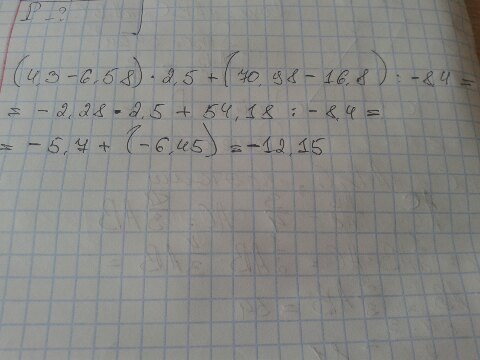 P-?
(4,3-6,58)·2,5+(70,98-16,8):-8,4=
=-2,28·2,5+54,18:-8,4=
=-5,7+(-6,45)=-12,15